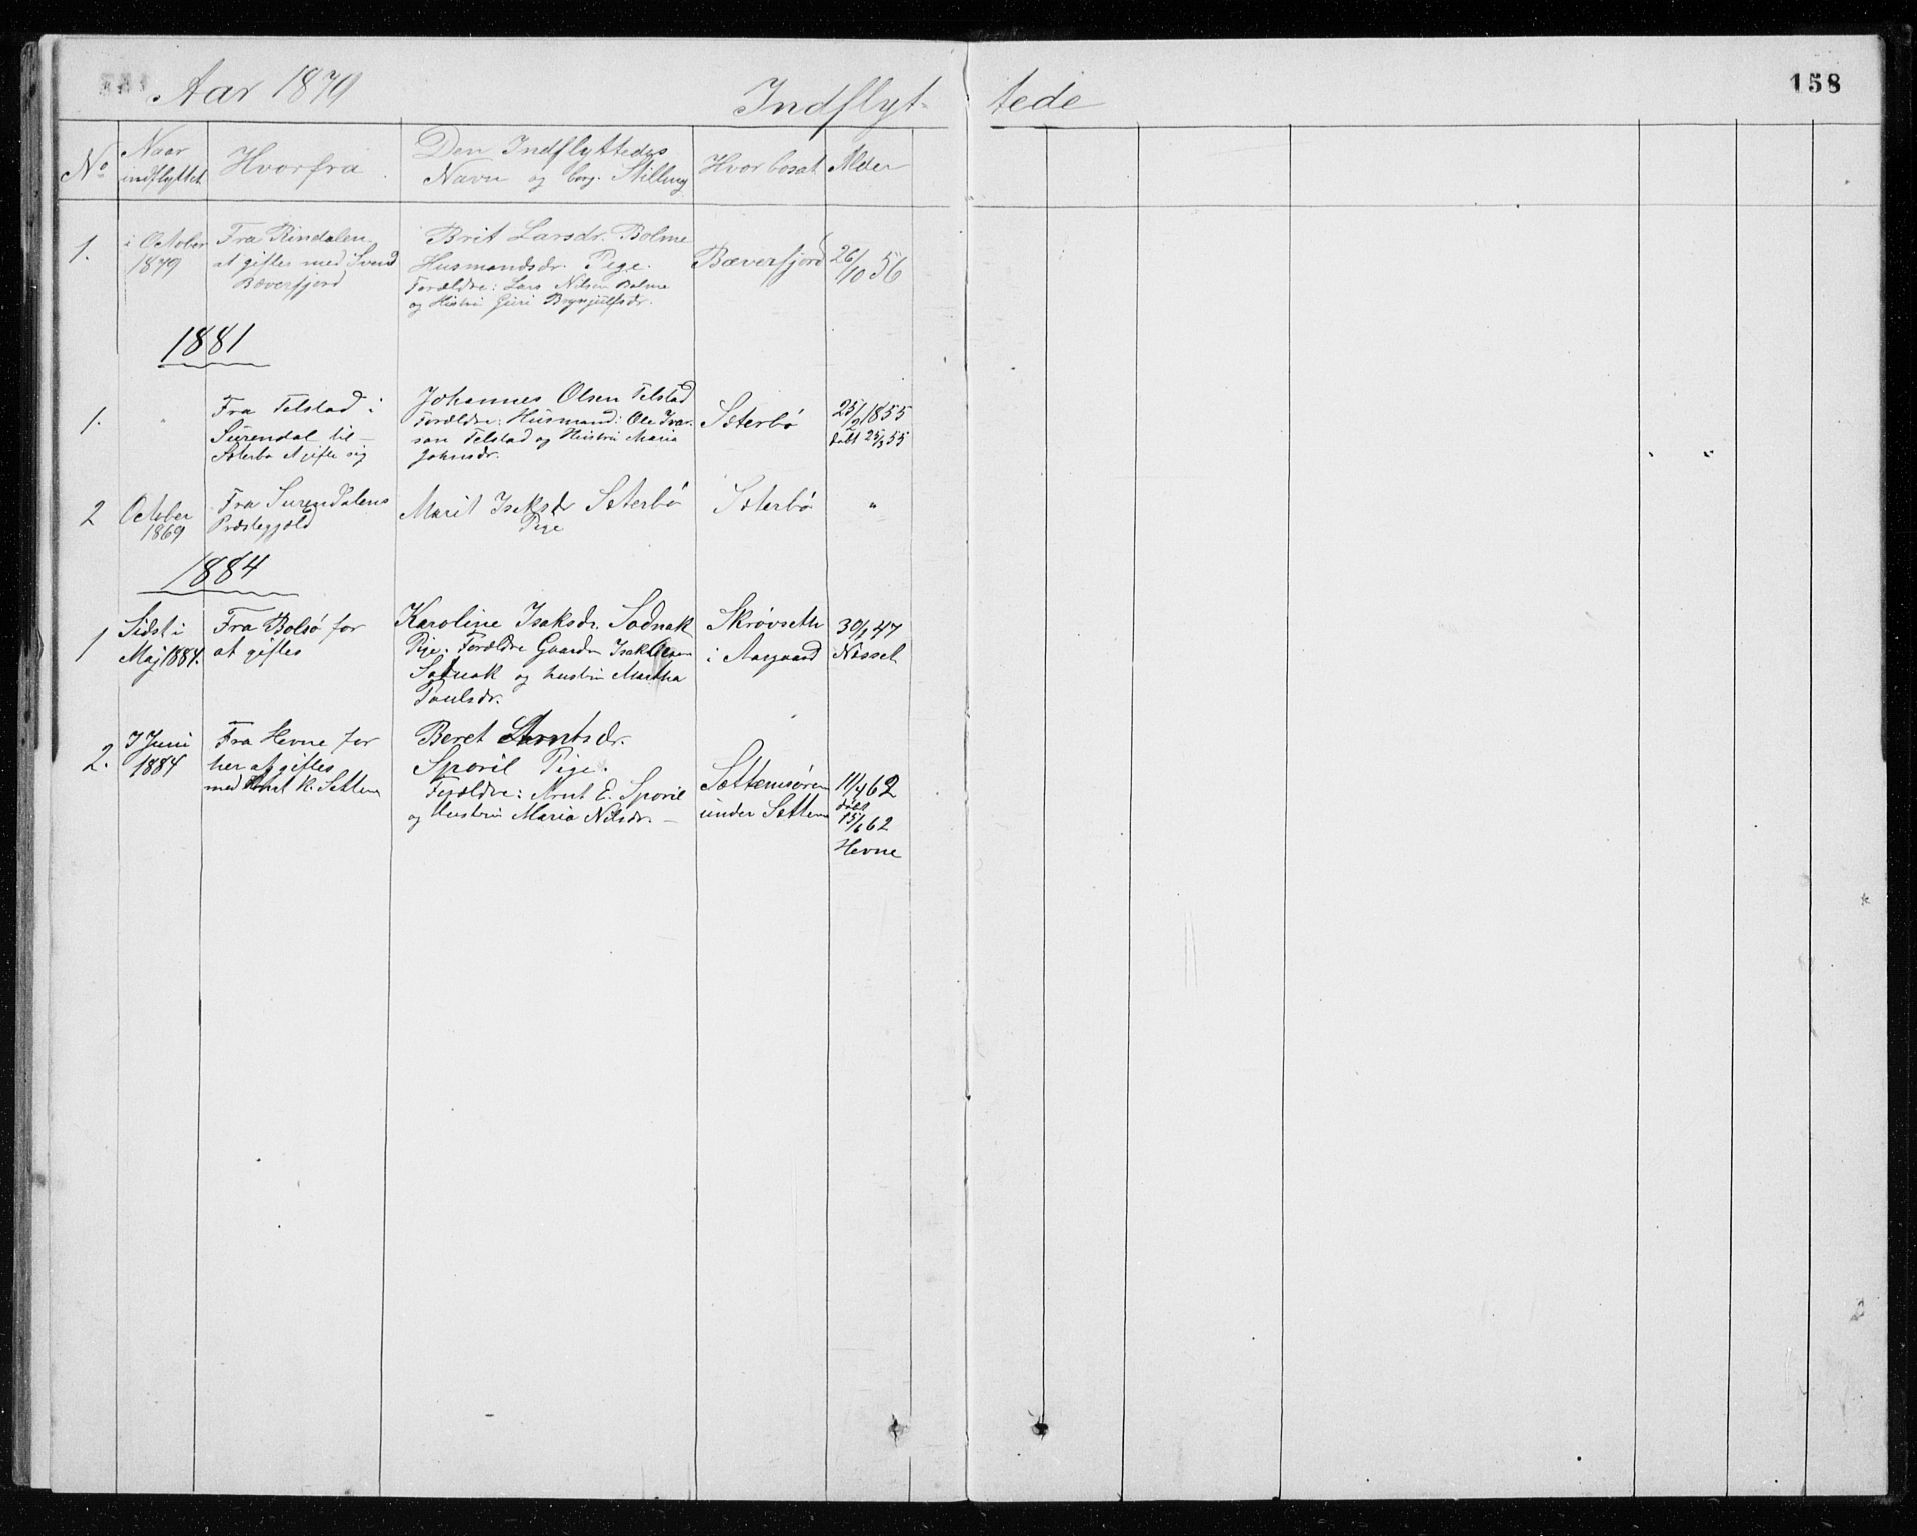 158
Aar 1879
Indflyt- tede
No
Naar indflyttet
Hvorfra
Den Indflyttedes
Navn og borg. Stilling
Hvor bosat
Alder
1.
i October
1879
Fra Rindalen
at giftes med Svend
Bæverfjord
Brit Larsdr. Bolme
Husmandsdr. Pige.
Forældre: Lars Nilsen Bolme
og Hustru Guri Brynjulfsdr.
Bæverfjord
26/10 56
1881
1.
"
Fra Telstad i
Surendal til
Sæterbø at gifte sig
Johannes Olsen Telstad
Forældre: Husmand: Ole Ivar-
sen Telstad og Hustru Maria
Johnsdr.
Sæterbø
25/2 1855
døbt 25/3 55
2
October
1869
Fra Surendalens
Præstegjæld
Marit Isaksdr Sæterbø
Pige
Sæterbø
"
1884
1
Sidst i
Maj 1884.
Fra Bolsø for
at giftes
Karoline Isaksdr. Sødnak
Pige. Forældre Gaardm Isak Olsen
Sødnak og hustru Martha
Poulsdr.
Skrøvseth
i Aasgaard
30/1 47
Nesset
2.
I Juni
1884
Fra Hevne for
her at giftes
med K. Settem
Beret Arntsdr.
Sporil Pige.
Forældre: Arnt E. Sporil
og Hustru Maria Nilsdr. —
Settemsøren
under Settem
11/4 62
døbt
15/6 62
Hevne